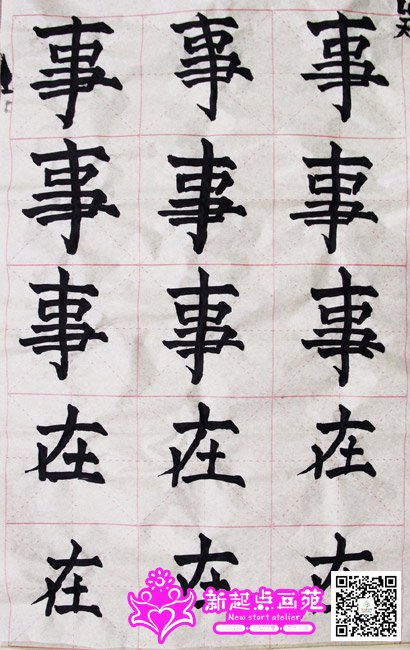 事 事 事
事 事 事
事 事 事
在 在 在
在 在 在
新起点画苑
New start atelier